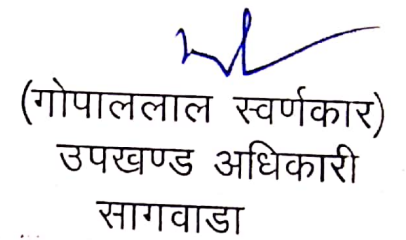 (गोपाललाल स्वर्णकार)
उपखण्ड अधिकारी
सागवाडा